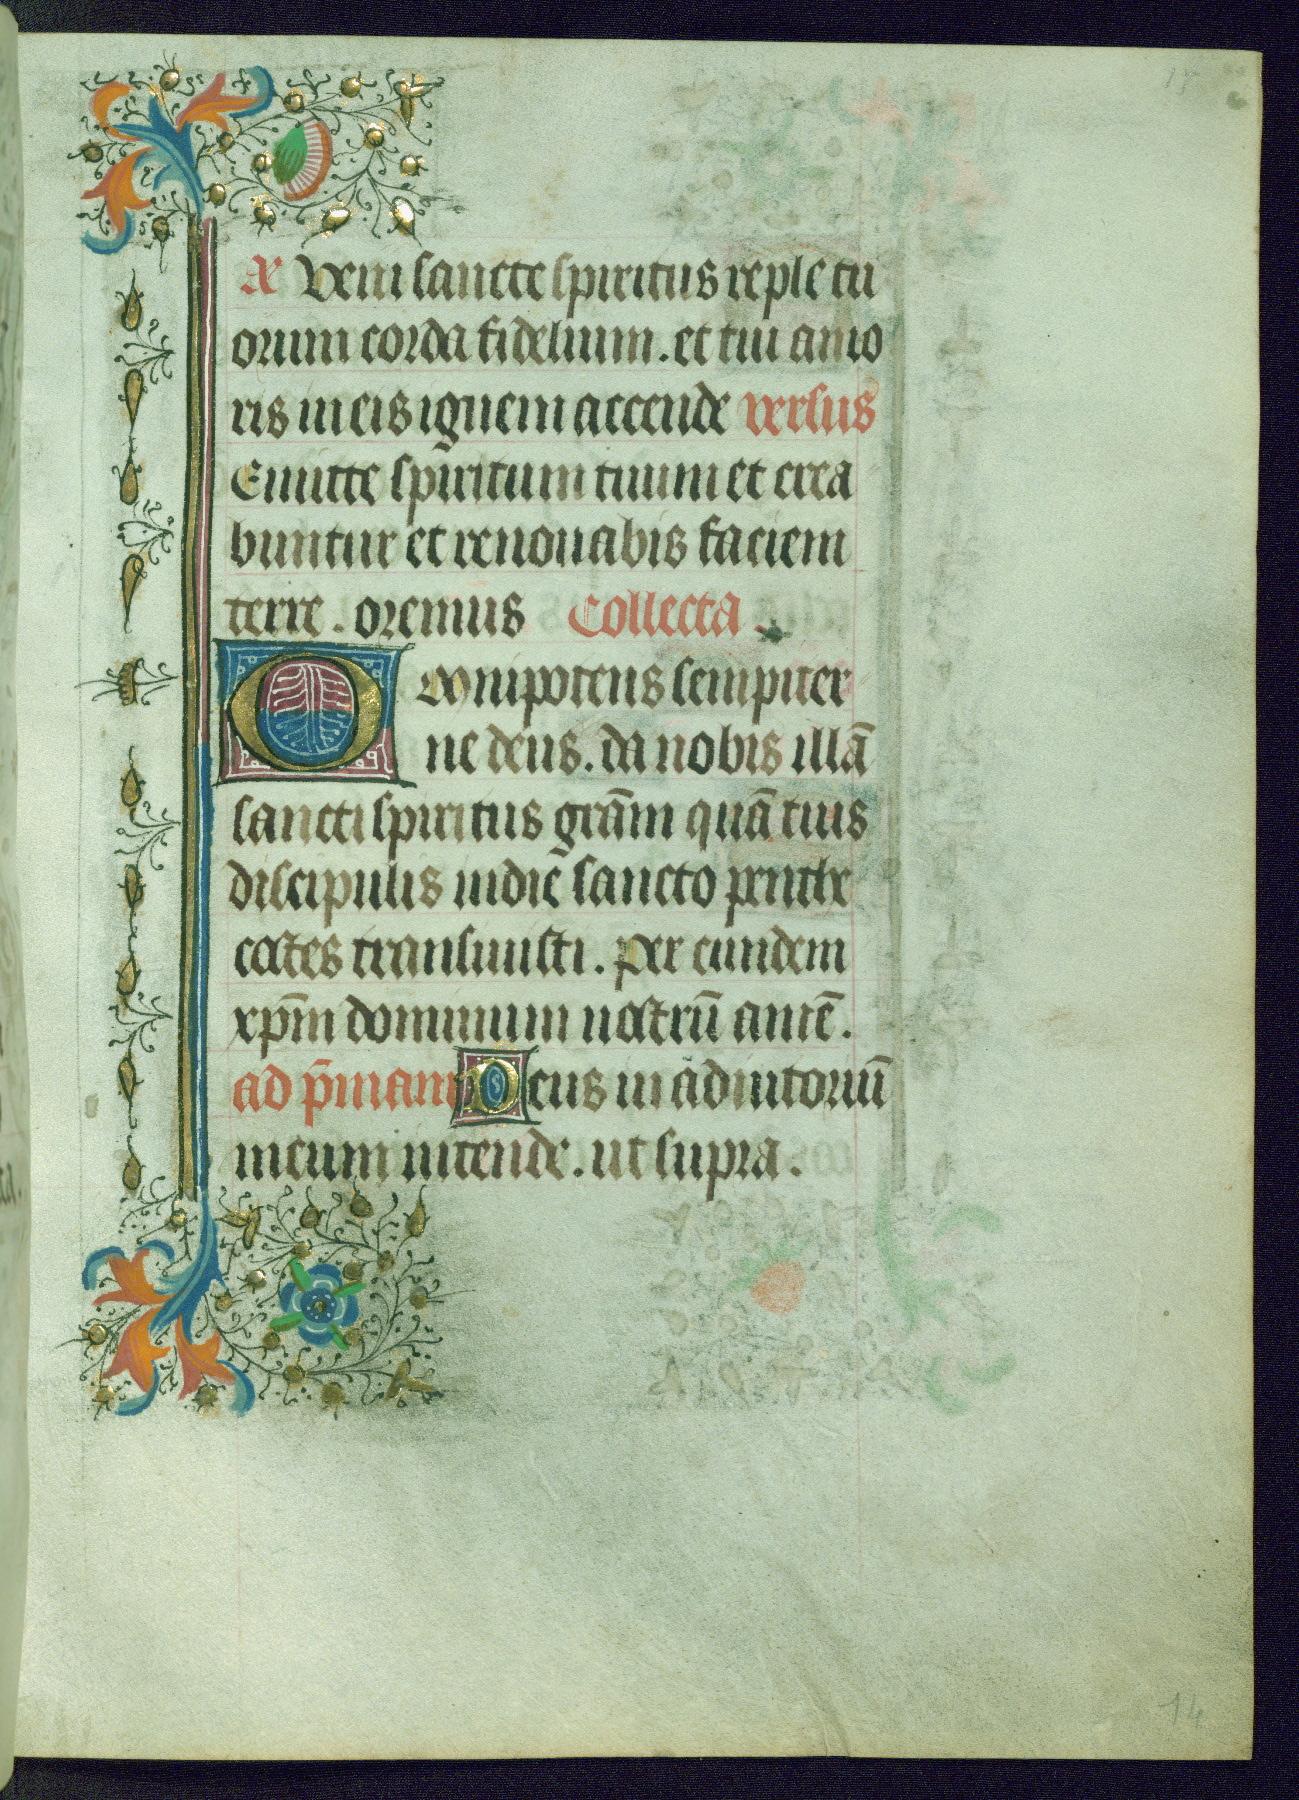 15
a̅ Veni sancte spiritus reple tu
orum corda fidelium. et tui amo
ris in eis ignem accende versus
Emitte spiritum tuum et crea
buntur et renouabis faciem
terre. oremus Collecta.
Omnipotens sempiter
ne deus. da nobis illā
sancti spiritus grām quā tuis
discipulis in die sancto penthe
costes transmisisti. per eundem
xpm̄ dominum nostrū amē.
ad p̄mam Deus in adiutoriū
meum intende. ut supra.
14